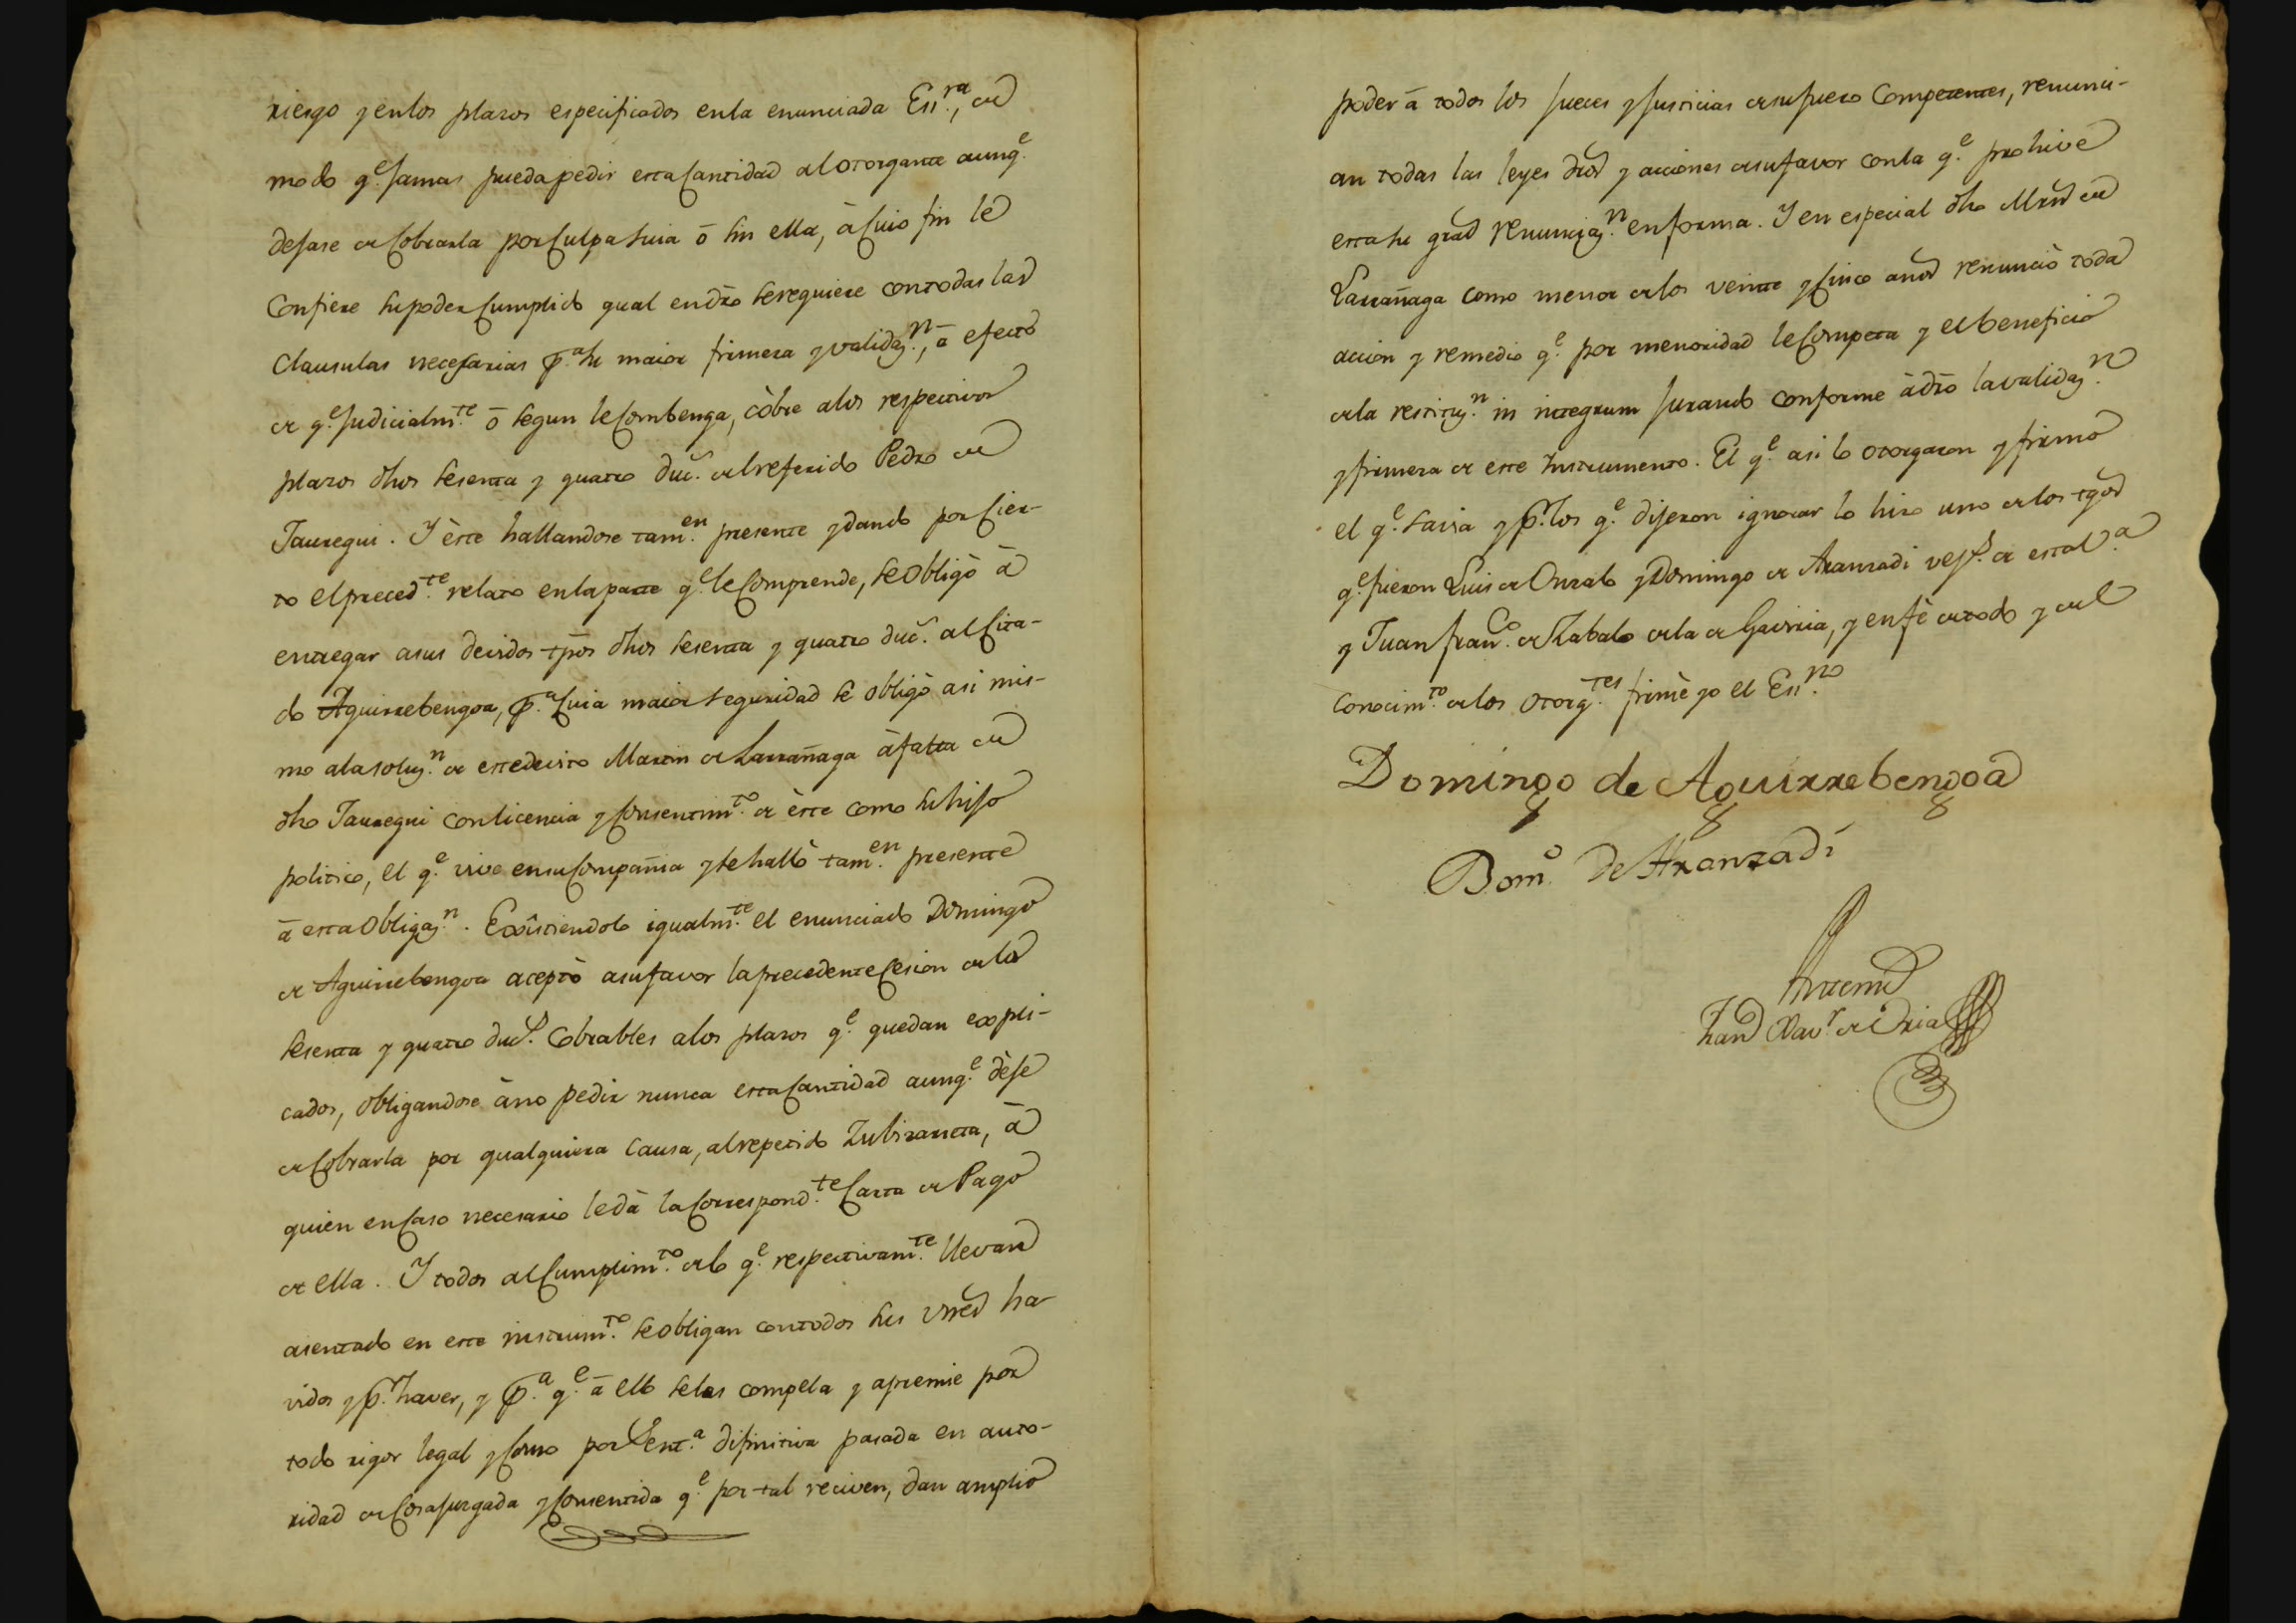 riesgo y en los plazos especificados en la enunciada Essra, de
modo qe jamas pueda pedir esta Cantidad al Otorgante aunqe
dejase de Cobrarla por Culpa suia ō sin ella, à Cuio fin le
Confiere su poder Cumplido qual en dro se requiere con todas las
Clausulas necesarias pa su maior firmeza y validazn, à efecto
de qe Judicialmte ō segun le Combenga, còbre a los respectivos
plazos dhos sesenta y quatro duc. del referido Pedro de
Jauregui. Y èste hallandose tamen presente y dando por Cier-
to el precedte relato en la parte qe le Comprende, se Obligò à
entregar a sus devidos tpōs dhos sesenta y quatro duc. al Cita-
do Aguirrebengoa, pa Cuia maior seguridad se obligò asi mis-
mo a la soluzn de este devito Martin de Larrañaga à falta de
dho Jauregui con licencia y Consentimto de èste como su hijo
politico, el qe vive en su Compañia y se hallò tamen presente
à esta Obligazn. Exîstiendolo igualmte el enunciado Domingo
de Aguirrebengoa aceptò a su favor la precedente Cesion de los
sesenta y quatro duc. Cobrables a los plazos qe quedan expli-
cados, obligandose à no pedir nunca esta Cantidad aunqe dèje
de Cobrarla por qualquiera Causa, al repetido Zubizarreta, à
quien en Caso necesario le dà la Correspondte Carta de Pago
de ella. Y todos al Cumplimto de lo qe respectivamte llevan
asentado en este instrumto se obligan con todos sus vnes ha-
vidos y pr haver, y pa qe à ello se les compela y apremie por
todo rigor legal y Como por Senta difinitiva pasada en auto-
ridad de Cosa juzgada y Consentida qe por tal reciven, dan amplio
poder à todos los Jueces y Justicias de su fuero Competentes, renunci-
an todas las leyes dros y acciones de su favor con la qe prohive
esta su gral renunciazn en forma. Y en especial dho Mrn de
Larrañaga como menor de los veinte y Cinco anos renunciò toda
accion y remedio qe por menoridad le Competa y el beneficio
de la restituzn in integrum Jurando conforme à dro la validazn
y firmeza de este Instrumento. El qe asi lo otorgaron y firmò
el qe savia y pr los qe dijeron ignorar lo hizo uno de los tgos
qe fueron Luis de Onzalo y Domingo de Aranzadi vesos de esta Va
y Juan Franco de Zabalo de la de Gaviria, y en fè de todo y del
conocimto de los otorgtes firmè yo el Essno
Domingo de Aguirrebengoa
Domo de Aranzadi
Antemi
Juan Xavr de Oria